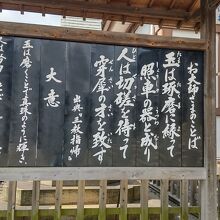 お大師さまのことば
玉は琢磨に縁って
照車の器と成り
人は切磋を待って
穿犀の才を致す
出典『三教指帰』
大意
玉は磨くことで真珠のように輝き